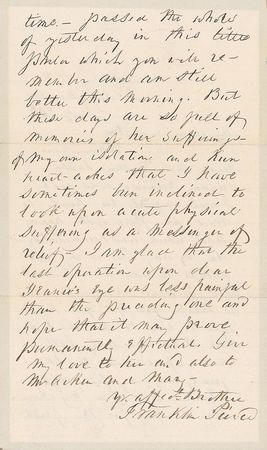 time. — passed the whole
of yesterday in this little
parlor which you will re-
member and am still
better this morning. But
these days are so full of
memories of her sufferings
of my own isolation and keen
heart-aches that I have
sometimes been inclined to
look upon acute physical
suffering as a messenger of
relief — I am glad that the
last operation upon dear
eye was less painful
than the preceding one and
hope that it may prove
permanently effectual. Give
my love to her and also to
and Mary —
Yr. affect. Brother
Franklin Pierce